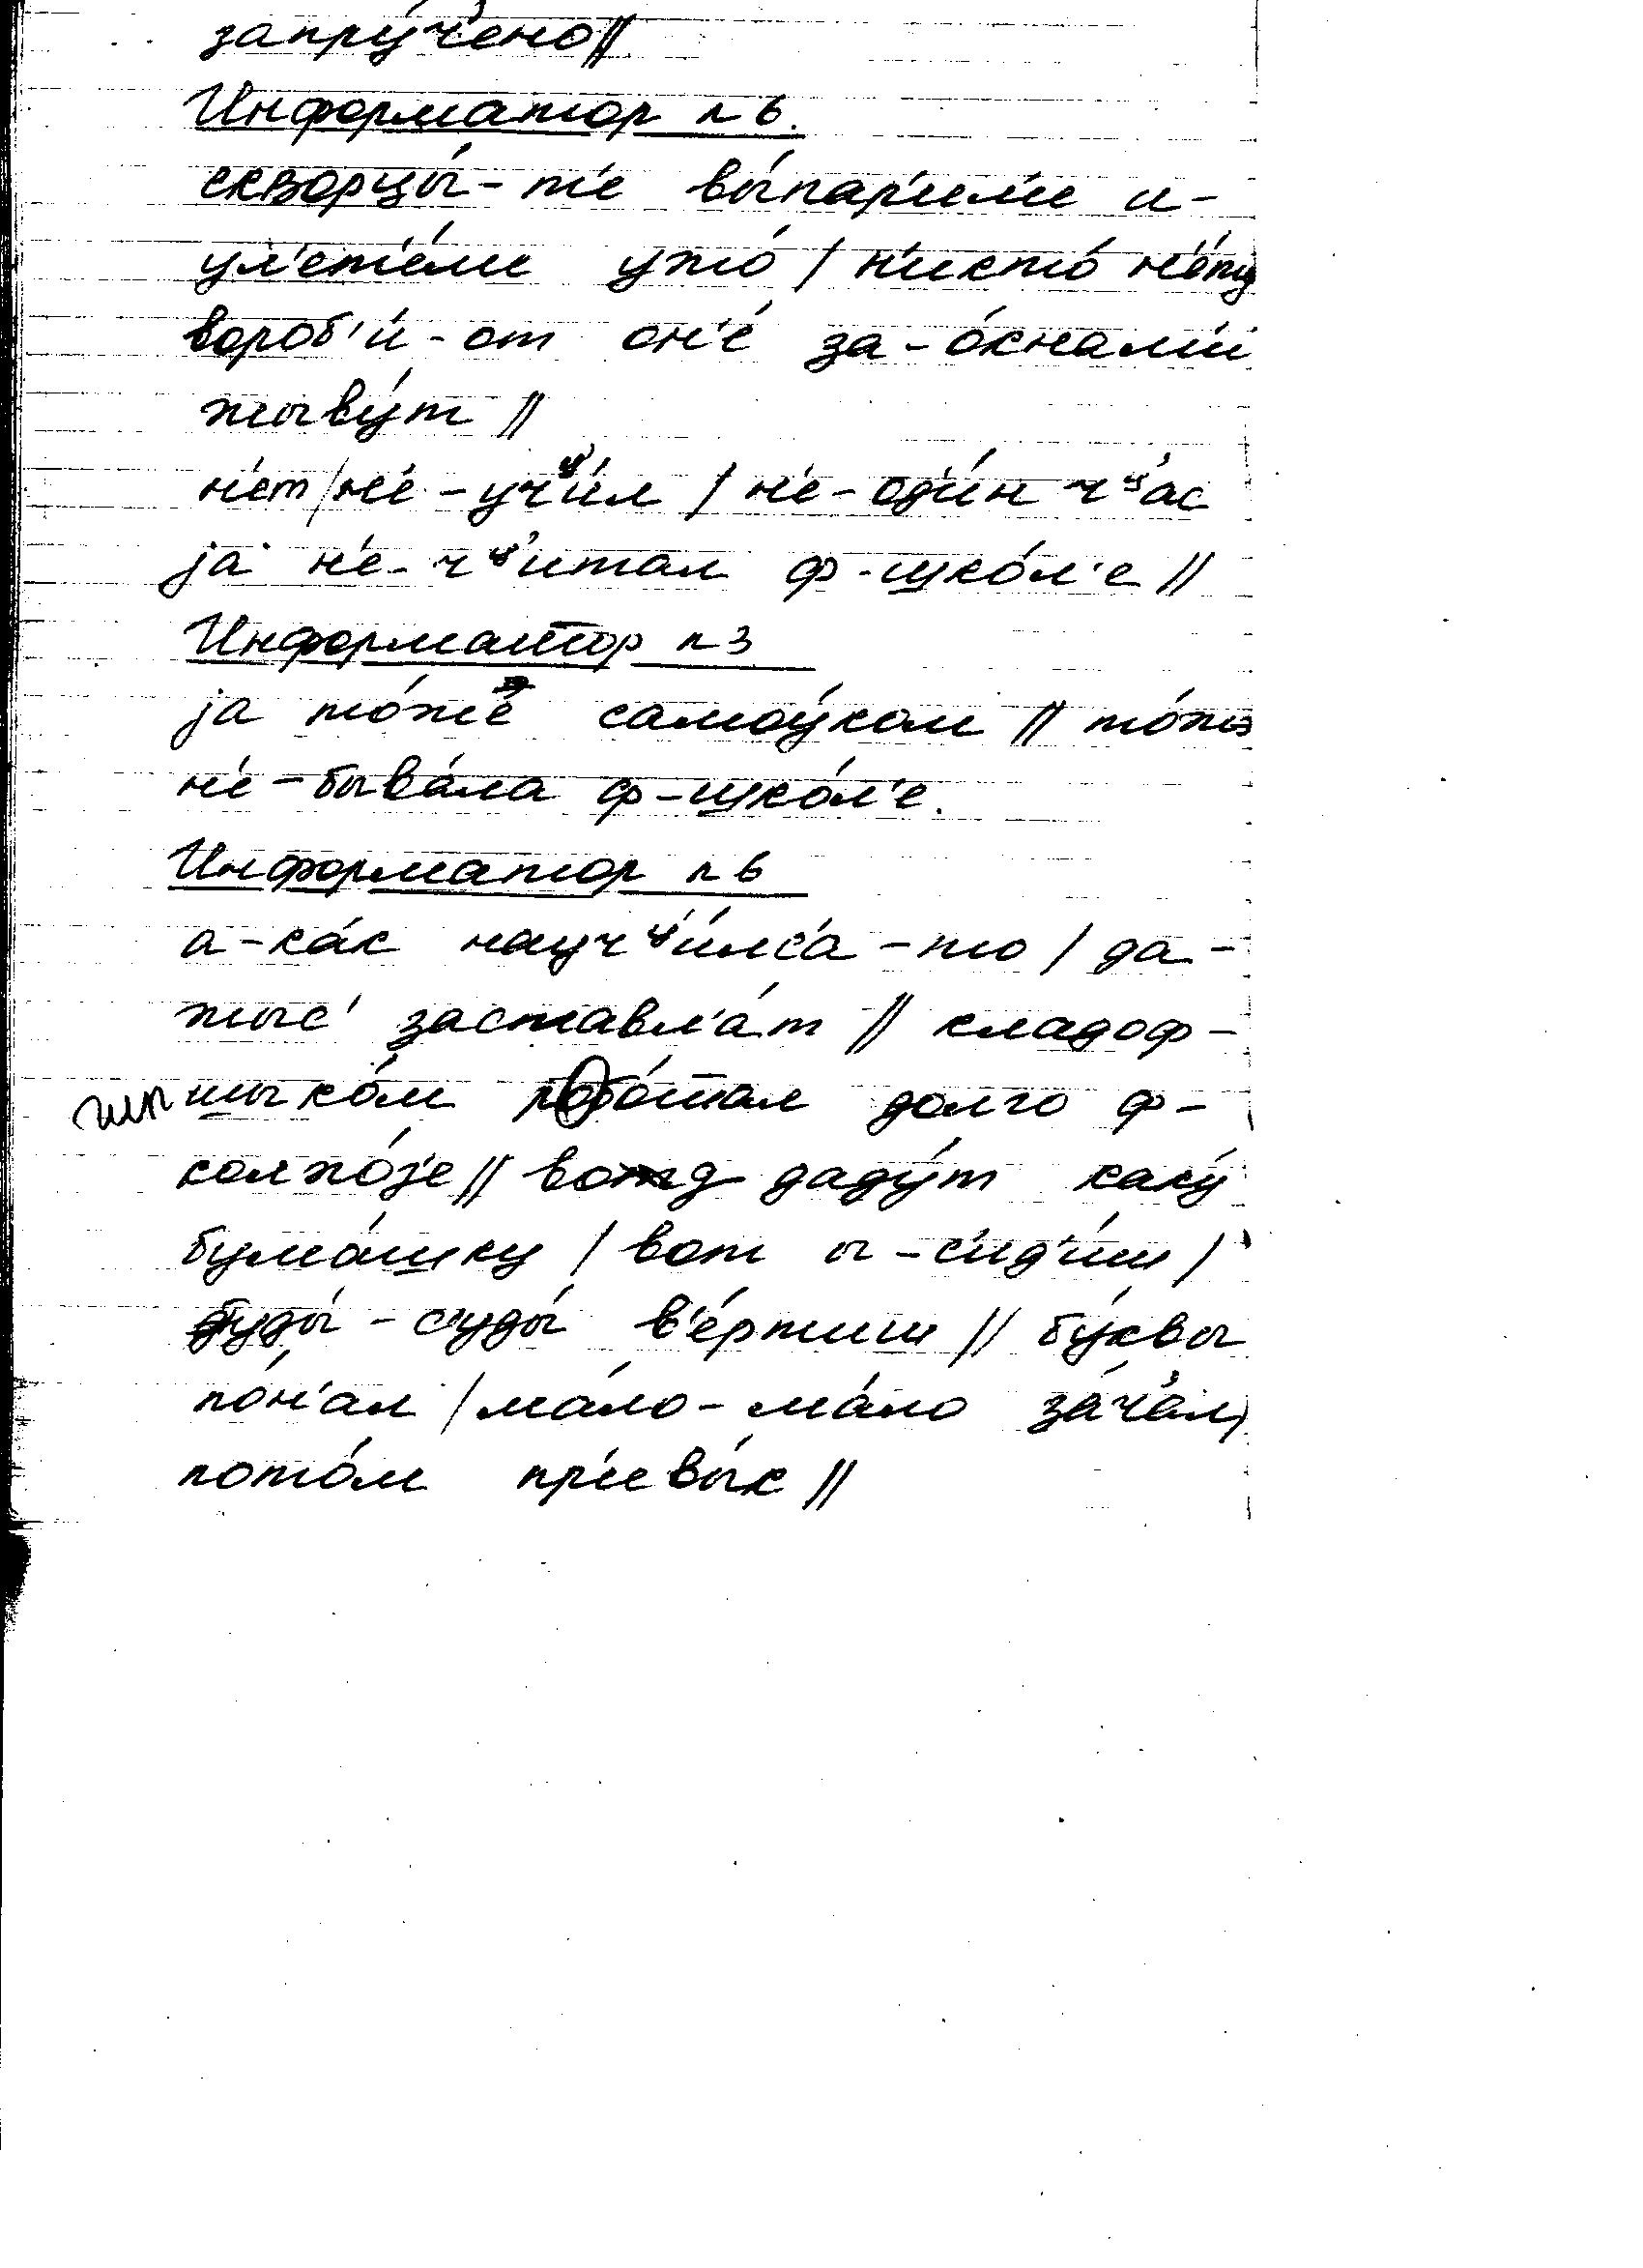 запру́ч'ено//
Информатор п 6.
скворцы́-т'е вы́пар'ил'и и-
ул'ет'е́л'и ужо́ / н'икто́
вороб'и́-от он'е́ за-о́кнам'и
жыву́т //
н'ет / н'е-уч'и́л / н'е-од'и́н ч'ас
jа н'е-ч'итал ф-шко́л'е //
Информатор п 3
jа то́же самоу́ком // то́жэ
н'е-быва́ла ф-шко́л'е.
Информатор п 6
а-ка́к науч'и́лс'а-то / да-
жыс' заставл'а́т // кладоф-
шыко́м робо́тал долго ф-
колхо́з'е // вот даду́т каку́
бума́шку / вот и-с'ид'и́ш /
туды́-с'уды́ в'е́ртиш // бу́квы
пон'ал / ма́ло-ма́ло за́ч'ал,
пото́м пр'ивы́к //